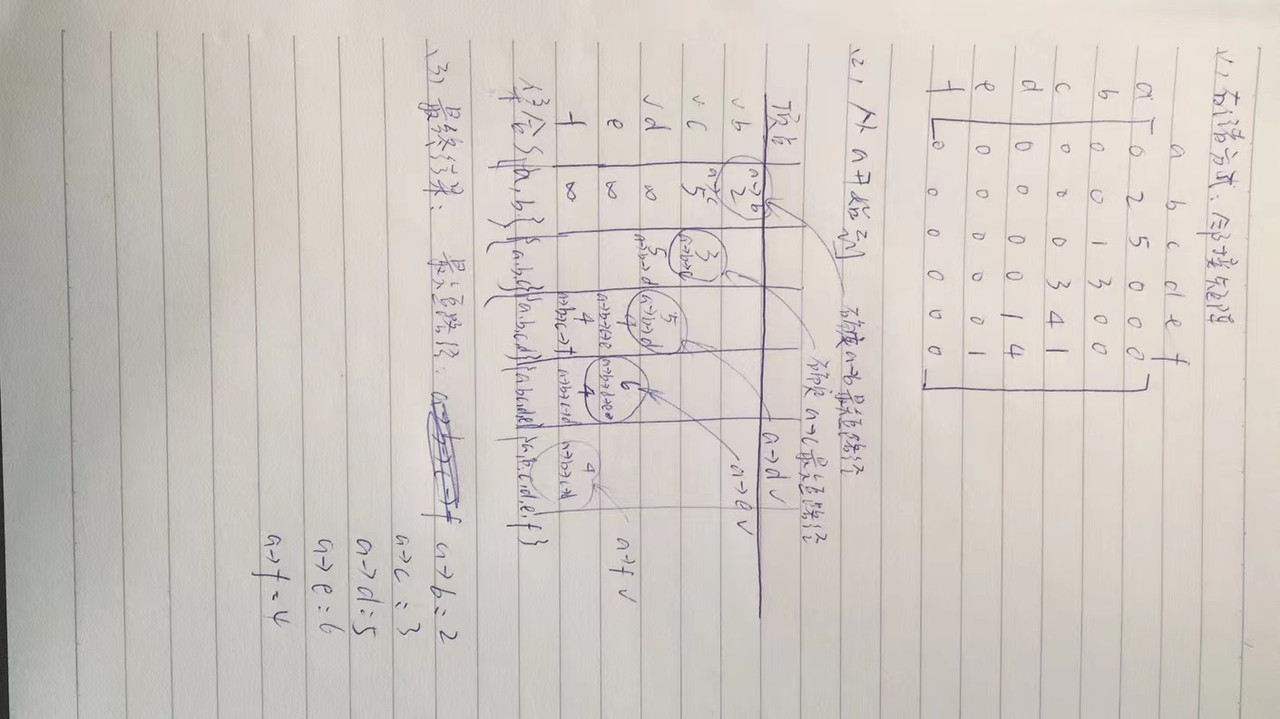 存储方式:邻接矩阵
a b c d e f
a 0 2 5 0 0 0
b 0 0 1 3 0 0
c 0 0 0 3 4 1
d 0 0 0 0 1 4
e 0 0 0 0 0 1
f 0 0 0 0 0 0
(2) 从a开始
确定a→b最短路径
确定a→c最短路径
a→d√
a→e√
a→f√
顶点
√b a→b 2
√c a→c 5 3
√d ∞ 5 5
e ∞ 6
f ∞ 4 4
集合 {a,b} {a,b,c} {a,b,c,d} {a,b,c,d,e} {a,b,c,d,e,f}
(3) 最终结果: 最短路径: a→b=2
a→c=3
a→d=5
a→e=6
a→f=4